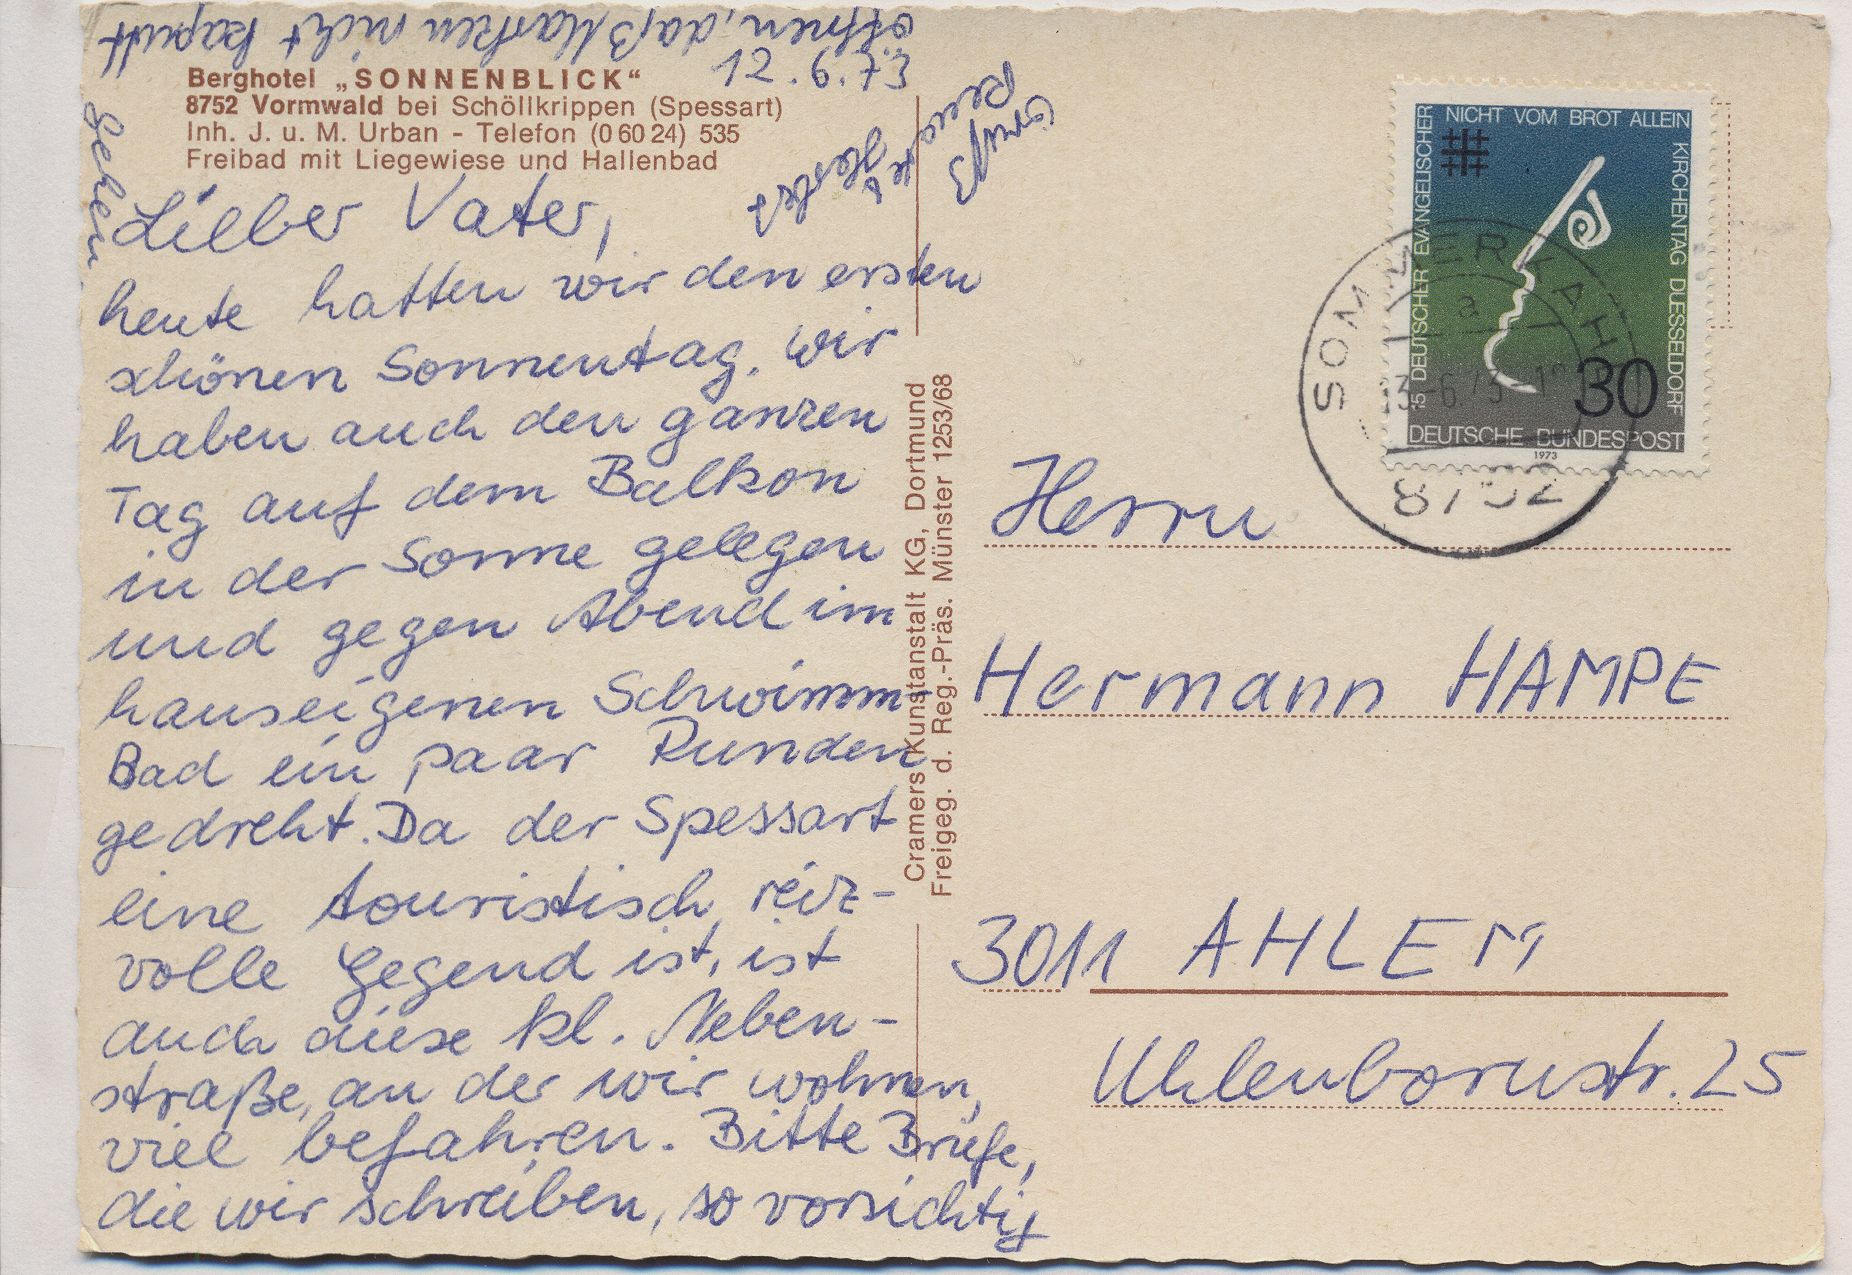 Berghotel „SONNENBLICK“
8752 Vormwald bei Schöllkrippen (Spessart)
Inh. J. u. M. Urban - Telefon (0 60 24) 535
Freibad mit Liegewiese und Hallenbad
12.6.73
Lieber Vater,
heute hatten wir den ersten
schönen Sonnentag. Wir
haben auch den ganzen
Tag auf dem Balkon
in der Sonne gelegen
und gegen Abend im
hauseigenen Schwimm-
Bad ein paar Runden
gedreht. Da der Spessart
eine touristisch reiz-
volle Gegend ist, ist
auch diese kl. Neben-
straße, an der wir wohnen,
viel befahren. Bitte Briefe,
die wir schreiben, so vorsichtig
öffnen, daß Marken nicht kaputt
gehen
Gruß
Renate
Cramers Kunstanstalt KG, Dortmund
Freigeg. d. Reg.-Präs. Münster 1253/68
15 DEUTSCHER EVANGELISCHER
NICHT VOM BROT ALLEIN
KIRCHENTAG DUESSELDORF
30
DEUTSCHE BUNDESPOST
1973
SOMMERKAHL
a
8752
Herrn
Hermann HAMPE
3011 AHLEM
Uhlenbornstr. 25